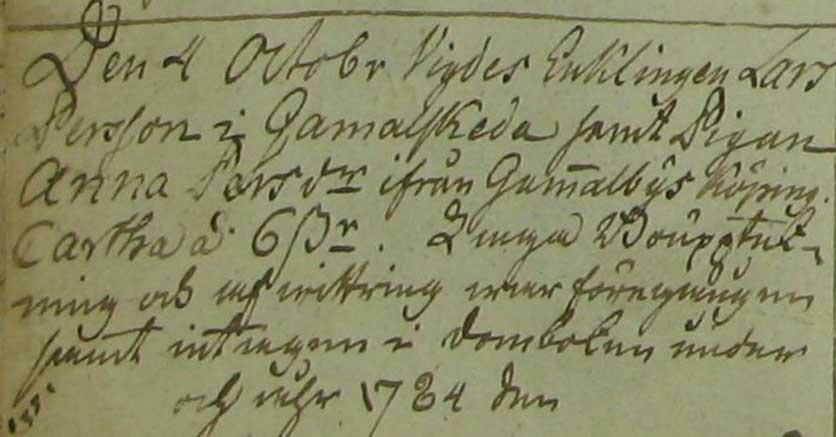 Den 4 Octobr Vigdes Enklingen Lars
Persson i Gamalskeda samt Pigan
Anna Pers dr ifrån Gam̅albÿs Köping.
Cartha â 6 ßr. Laga Boupptek-
ning och afwittring war föregången
samt intagen i Domboken under
och åhr 1784 den